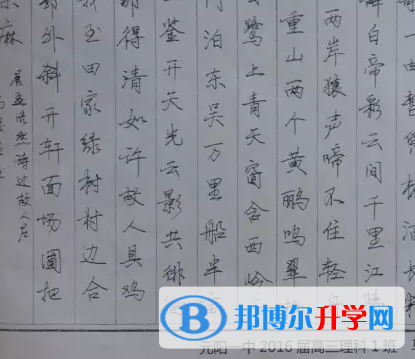 辞白帝彩云间千里江陵
两岸猿声啼不住轻舟
重山两个黄鹂鸣翠
鹭上青天窗含西岭
门泊东吴万里船半
鉴开天光云影共徘
那得清如许故人具鸡
我至田家绿树村边合
郭外斜开轩面场圃把
麻
孟浩然诗过故人庄
邦博尔升学网
元阳一中 2016 届高三理科 1 班